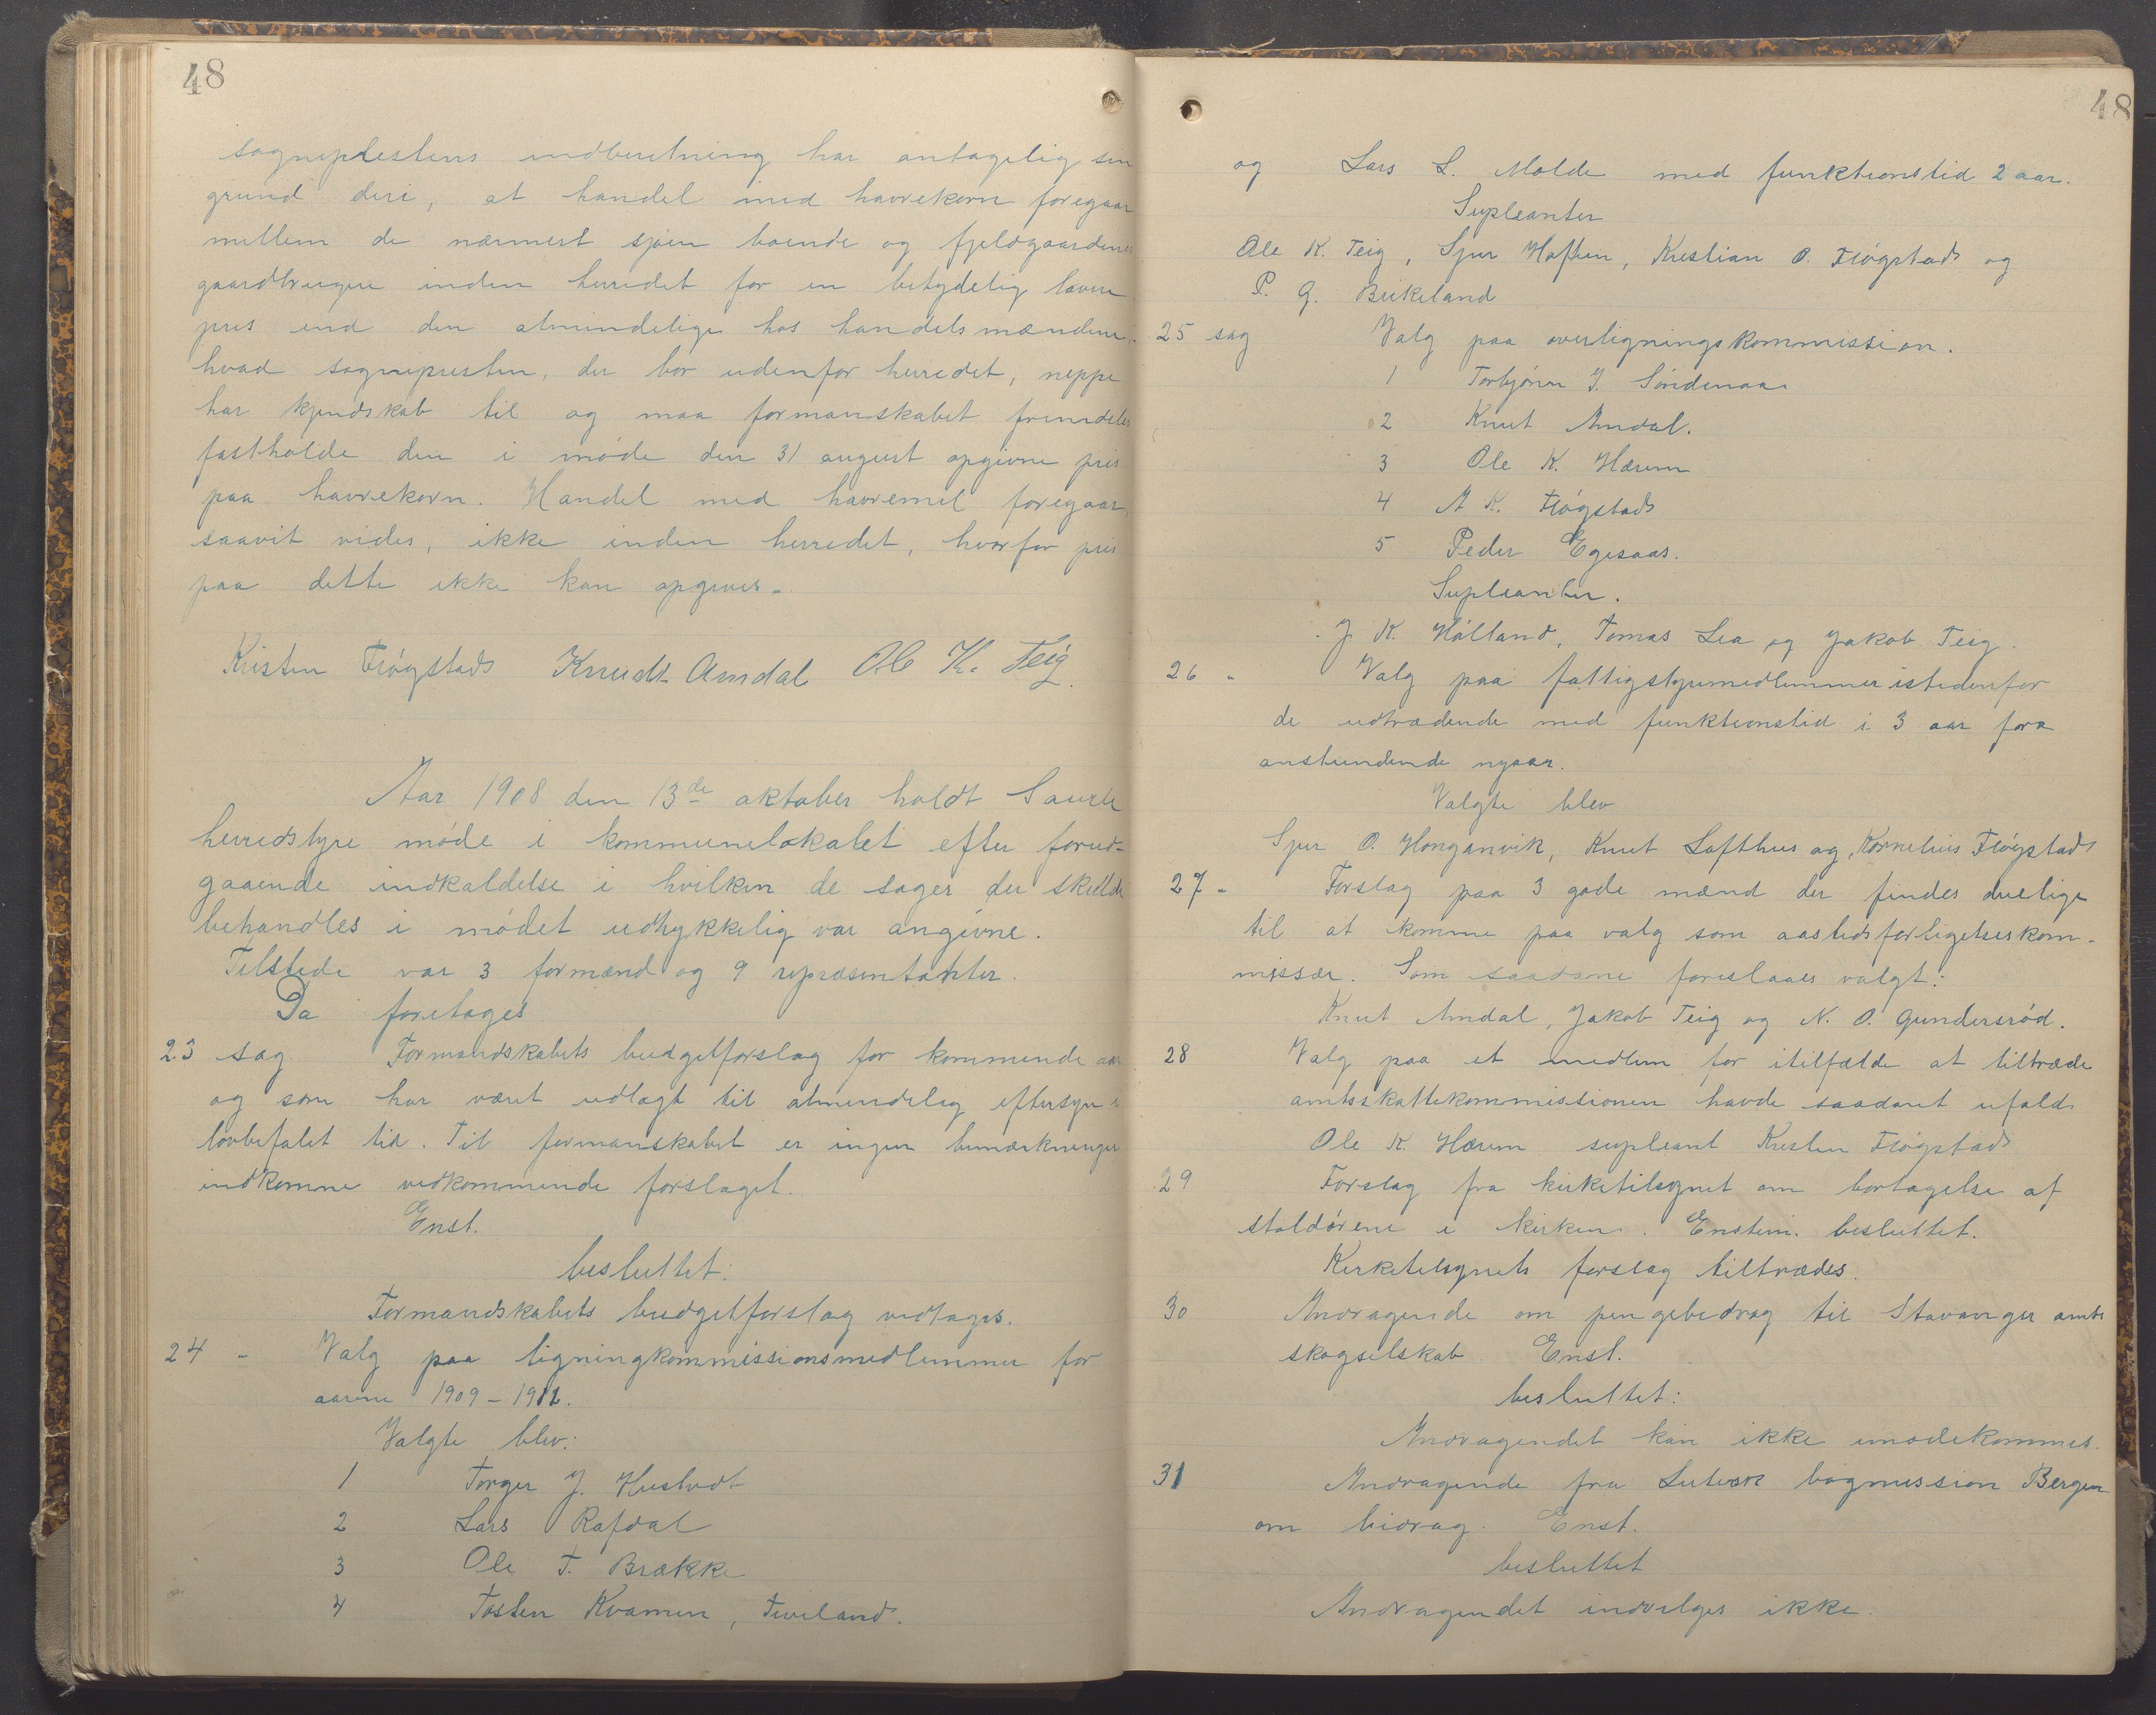 48
sogneprestens indberetning har antagelig sin
grund deri, at handel med havrekorn foregaar
mellem de nærmest sjøen boende og fjeldgaardenes
gaardbrugere inden herredet for en betydelig lavere
pris end den almindelige hos handelsmændene,
hvad sognepresten, der bor udenfor herredet, neppe
har kjendskab til og maa formanskabet fremdeles
fastholde den i møde den 31 august opgivne pris
paa havrekorn. Handel med havremel foregaar,
saavit vides, ikke inden herredet, hvorfor pris
paa dette ikke kan opgives.
Kristen Fløgstad Knudt Amdal Ole K. Teig.
Aar 1908 den 13de oktober holdt Saude
herredstyre møde i kommunelokalet efter forud-
gaaende indkaldelse i hvilken de sager der skulde
behandles i mødet udtrykkelig var angivne.
Tilstede var 3 formænd og 9 repræsentanter.
Da foretages
23 sag Formandskabets budgetforslag for kommende aar
og som har været udlagt til almindelig eftersyn i
lovbefalet tid. Til formanskabet er ingen bemærkninger
indkomne vedkommende forslaget.
Enst.
besluttet:
Formandskabets budgetforslag vedtages.
24 - Valg paa ligningkommissionsmedlemmer for
aarene 1909 - 1912.
Valgte blev:
1 Torger J. Hustvedt
2 Lars Rafdal
3 Ole T. Brække
4 Tosten Kvamen, Tveland.
48
og Lars L. Molde med funktionstid 2 aar.
Supleanter
Ole K. Teig, Sjur Hoftun, Kristian O. Fløgstad og
P. G. Birkeland
25 sag Valg paa overligningskommission.
1 Torbjørn J. Søndenaa
2 Knut Amdal.
3 Ole K. Hærum
4 A K. Fløgstad
5 Peder Egesaas.
Supleanter.
J. K. Hålland, Tomas Lea og Jakob Teig.
26 - Valg paa fattigstyremedlemmer istedenfor
de udtrædende med funktionstid i 3 aar fora
anstundende nyaar.
Valgte blev
Sjur O. Honganvik, Knut Lofthus og Kornelius Fløgstad
27 - Forslag paa 3 gode mænd der findes duelige
til at komme paa valg som aastedsforligelseskom-
missær. Som saadane foreslaaes valgt:
Knut Amdal, Jakob Teig og N. O. Gundersrød.
28 Valg paa et medlem for itilfælde at tiltræde
amtsskattekommissionen havde saadant ufald
Ole K. Hærum supleant Kristen Fløgstad
29 Forslag fra kirketilsynet om bortagelse af
stoldørene i kirken. Enstem. besluttet.
Kirketilsynets forslag tiltrædes.
30 Andragende om pengebedrag til Stavanger amts
skogselskab Enst.
besluttet:
Andragendet kan ikke imødekommes.
31 Andragende fra Lutersk bogmission Bergen
om bidrag. Enst.
besluttet
Andragendet indvilges ikke.